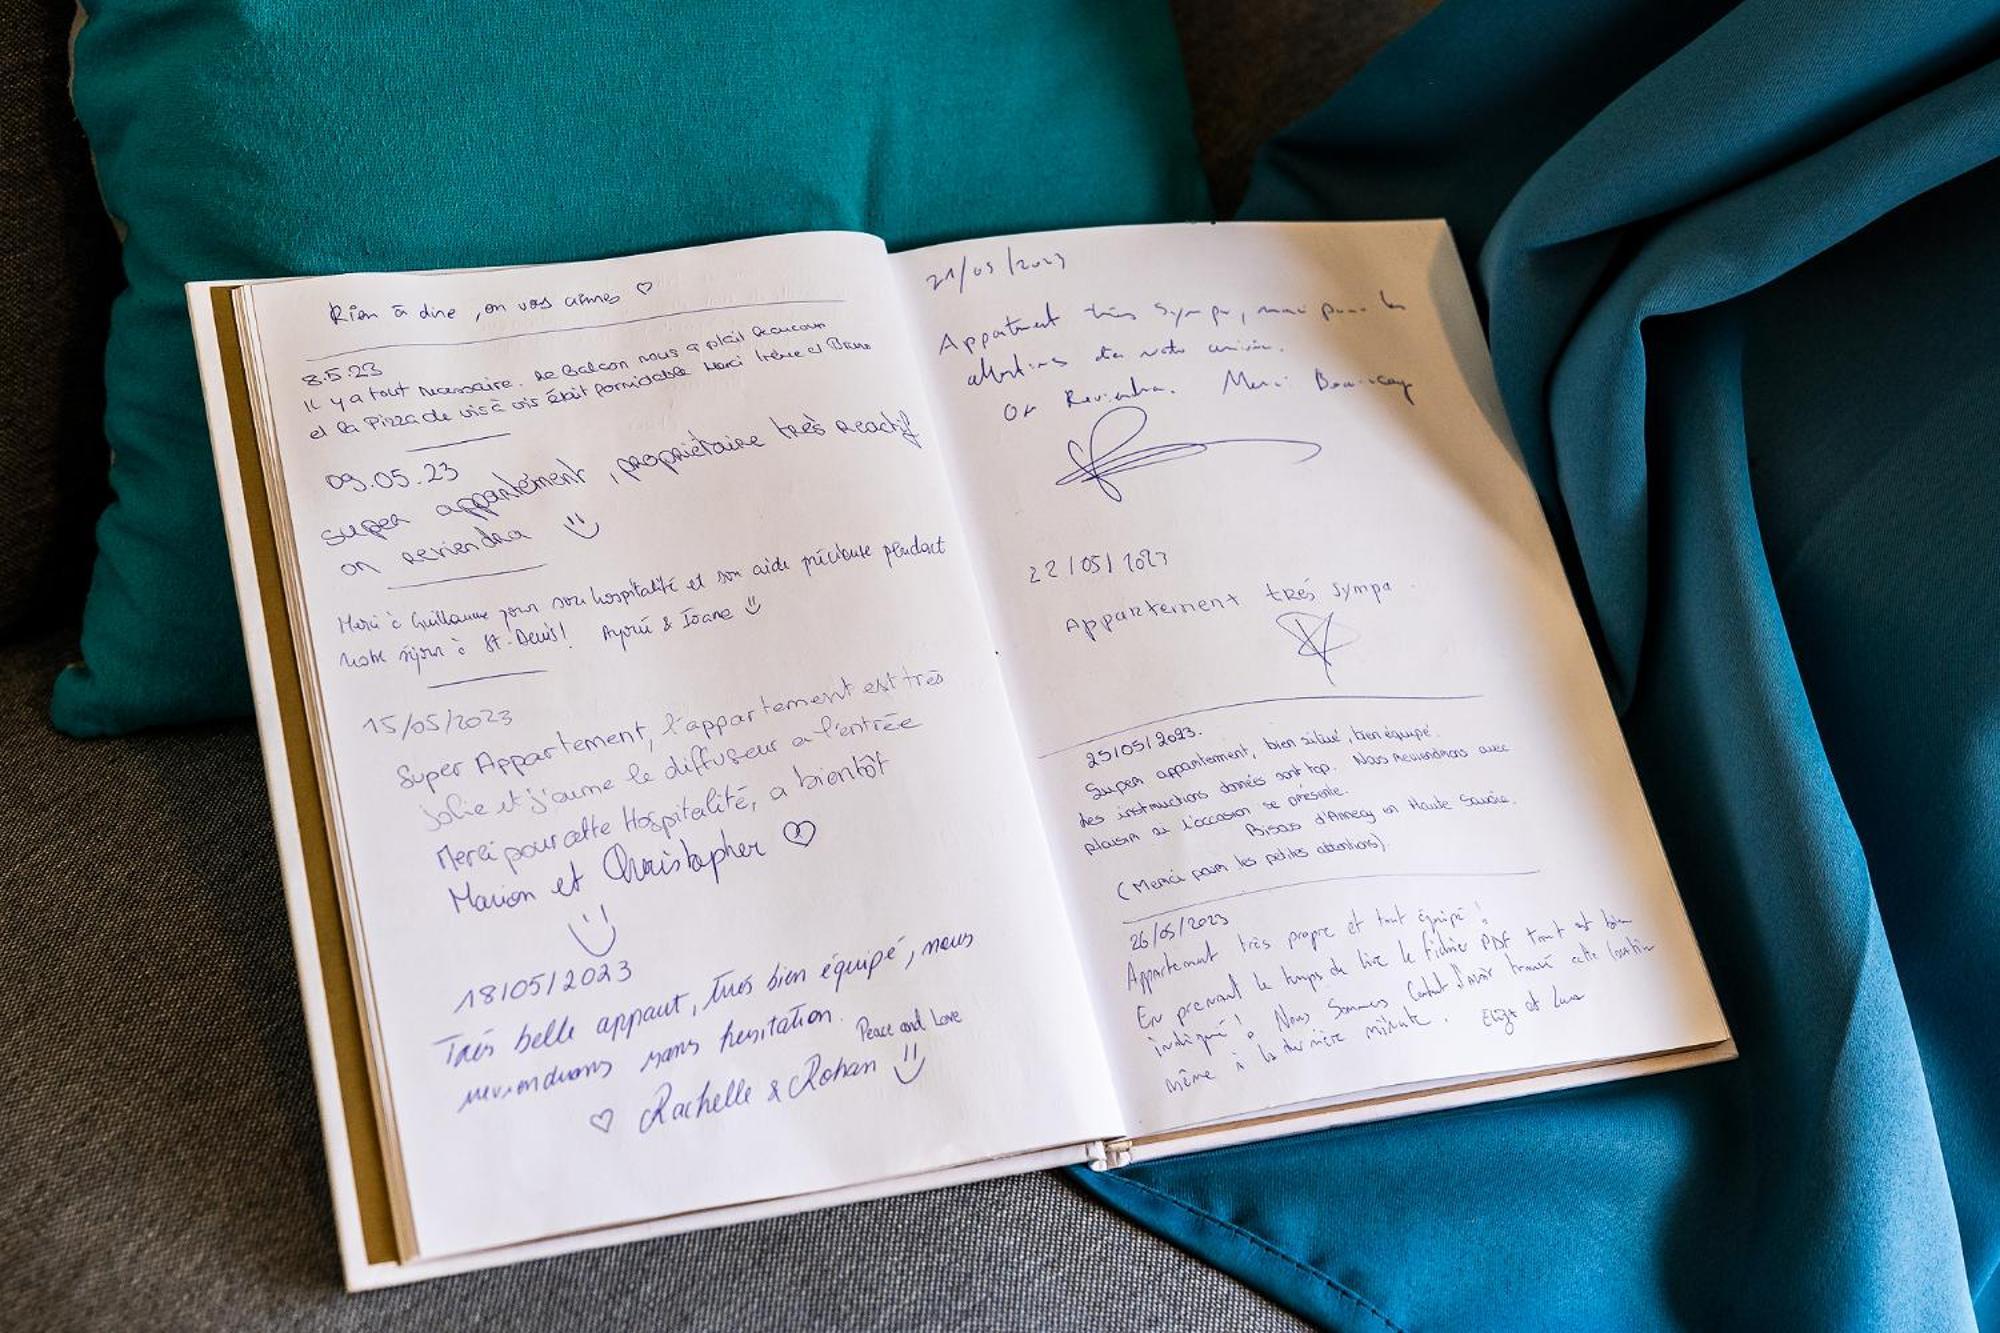 Rien à dire, on vous aimes ♡
8.5.23
Il y a tout necessaire. Le Balcon nous a plait beaucoup
et la Pizza de vis à vis était formidable Merci Irène et Bruno
09.05.23
super appartement, propriétaire très reactif
on reviendra
Merci à Guillaume pour son hospitalité et son aide précieuse pendant
notre séjour à St-Denis! & Ioane
15/05/2023
Super Appartement, l'appartement est très
jolie et j'aime le diffuseur a l'entrée
Merci pour cette Hospitalité, a bientôt
Marion et Christopher ♡
18/05/2023
Très belle appart, très bien équipé, nous
reviendrons sans hesitation.
Peace and Love
♡ Rachelle & Rohan
21/05/2023
Appartement très sympa, merci pour les
attentions dès notre arrivée.
On Reviendra. Merci
22/05/2023
Appartement très sympa.
25/05/2023.
Super appartement, bien situé, bien équipé.
des instructions données sont top. Nous reviendrons avec
plaisir si l'occasion se présente.
Bisous d'Annecy en Haute Savoie.
(Merci pour les petites attentions).
26/05/2023
Appartement très propre et tout équipé!
En prenant le temps de lire le fichier PDF tout est bien
indiqué! Nous sommes content d'avoir trouvé cette location
même à la dernière minute. et